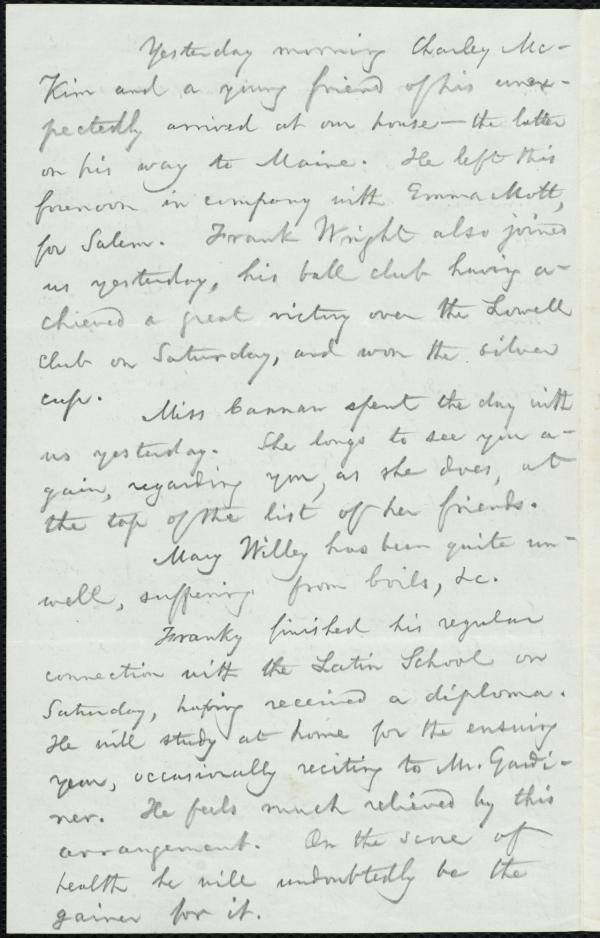 Yesterday morning Charley Mc-
Kim and a young friend of his unex-
pectedly arrived at our house — the latter
on his way to Maine. He left this
forenoon in company with Emma Mott,
for Salem. Frank Wright also joined
us yesterday, his ball club having a-
chieved a great victory over the Lowell
club on Saturday, and won the silver
cup.
Miss Cannan spent the day with
us yesterday. She longs to see you a-
gain, regarding you, as she does, at
the top of the list of her friends.
Mary Willey has been quite un-
well, suffering from boils, &c.
Franky finished his regular
connection with the Latin School on
Saturday, having received a diploma.
He will study at home for the ensuing
year, occasionally reciting to Mr. Gardi-
ner. He feels much relieved by this
arrangement. On the score of
health he will undoubtedly be the
gainer for it.